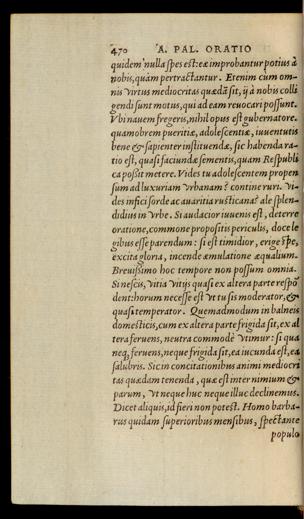 470 A. PAL. ORATIO
quidem nulla spes est: eæ improbantur potius à
nobis, quàm pertractantur. Etenim cum om-
nis virtus mediocritas quædā sit, ij à nobis colli
gendi sunt motus, qui ad eam reuocari possunt.
Vbi nauem fregeris, nihil opus est gubernatore.
quamobrem pueritiæ, adolescentiæ, iuuentutis
bene & sapienter instituendæ, sic habenda ra-
tio est, quasi faciundæ sementis, quam Respubli
ca possit metere. Vides tu adolescentem propen
sum ad luxuriam vrbanam? contine ruri. Vi-
des infici sorde ac auaritia rusticana? ale splen-
didius in vrbe. Si audacior iuuenis est, deterre
oratione, commone propositis periculis, doce le
gibus esse parendum: si est timidior, erige spē,
excita gloria, incende æmulatione æqualium.
Breuissimo hoc tempore non possum omnia.
Si nescis, vitia vitijs quasi ex altera parte respō
dent: horum necesse est vt tu sis moderator, &
quasi temperator. Quemadmodum in balneis
domesticis, cum ex altera parte frigida sit, ex al
tera feruens, neutra commodè vtimur: si qua
neq; feruens, neque frigida sit, ea iucunda est, ea
salubris. Sic in concitationibus animi mediocri
tas quædam tenenda, quæ est inter nimium &
parum, vt neque huc neque illuc declinemus.
Dicet aliquis, id fieri non potest. Homo barba-
rus quidam superioribus mensibus, spectante
populo